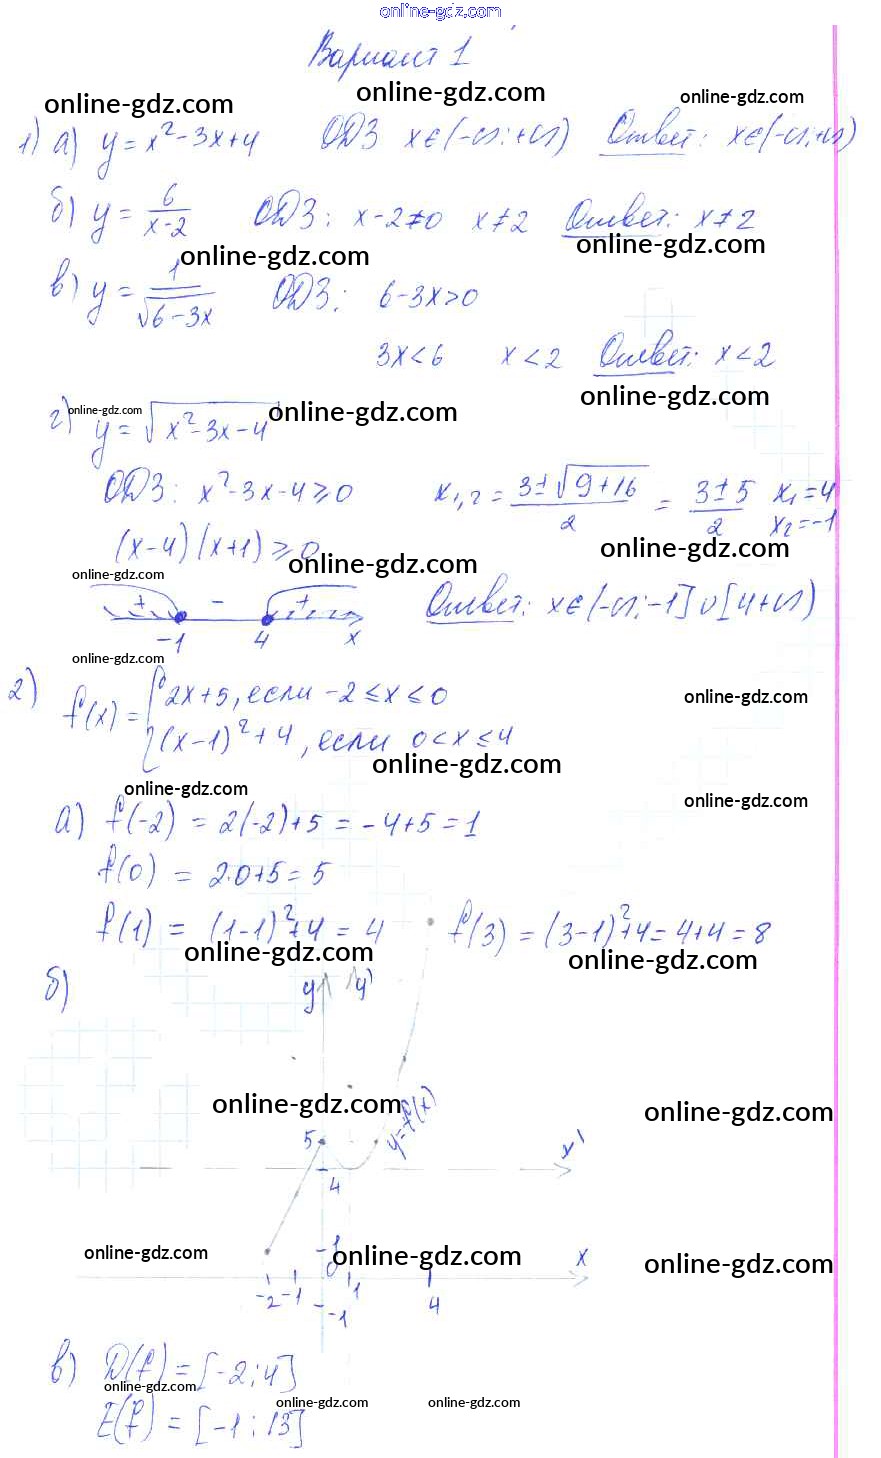 online-gdz.com
Вариант 1
online-gdz.com online-gdz.com online-gdz.com
1) а) y = x² - 3x + 4 ОДЗ x∈(-∞;+∞) Ответ: x∈(-∞;+∞)
б) y = 6/(x-2) ОДЗ: x-2≠0 x≠2 Ответ: x≠2
online-gdz.com online-gdz.com
в) y = 1/√(6-3x) ОДЗ: 6-3x>0
3x<6 x<2 Ответ: x<2
online-gdz.com
online-gdz.com online-gdz.com
г) y = √(x²-3x-4)
ОДЗ: x²-3x-4≥0 x₁,₂ = (3±√(9+16))/2 = (3±5)/2 x₁=4 x₂=-1
(x-4)(x+1)≥0
online-gdz.com online-gdz.com
online-gdz.com
+ - + Ответ: x∈(-∞;-1]∪[4+∞)
-1 4 x
online-gdz.com
2) f(x) = { 2x+5, если -2≤x≤0
(x-1)²+4, если 0<x≤4
online-gdz.com
online-gdz.com
online-gdz.com
online-gdz.com
а) f(-2) = 2(-2)+5 = -4+5 = 1
f(0) = 2·0+5 = 5
f(1) = (1-1)²+4 = 4 f(3) = (3-1)²+4 = 4+4 = 8
online-gdz.com online-gdz.com
б) y y'
online-gdz.com online-gdz.com
y=f(x)
5 x'
4
online-gdz.com online-gdz.com online-gdz.com
1 x
0
-2 -1 1 4
-1
в) D(f) = [-2;4]
online-gdz.com
E(f) = [-1;13]
online-gdz.com online-gdz.com